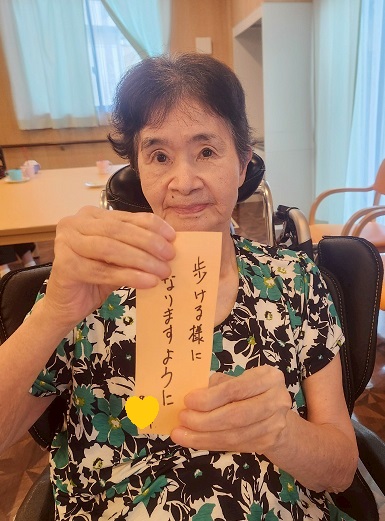 歩ける様に
なりますように